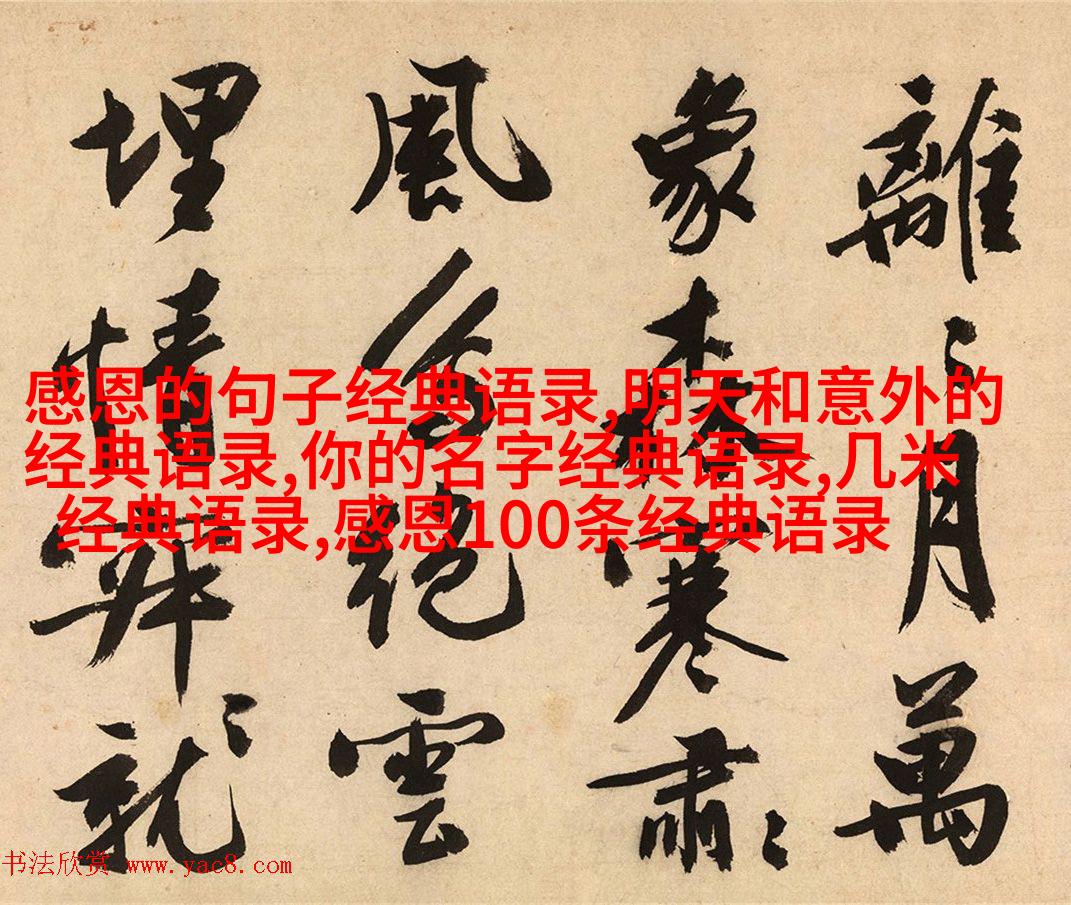 離〻月萬
象森寒肅〻
風絕雲
埋情就〻
感恩的句子经典语录,明天和意外的
经典语录,你的名字经典语录,几米
经典语录,感恩100条经典语录
书法欣赏 www.yac8.com